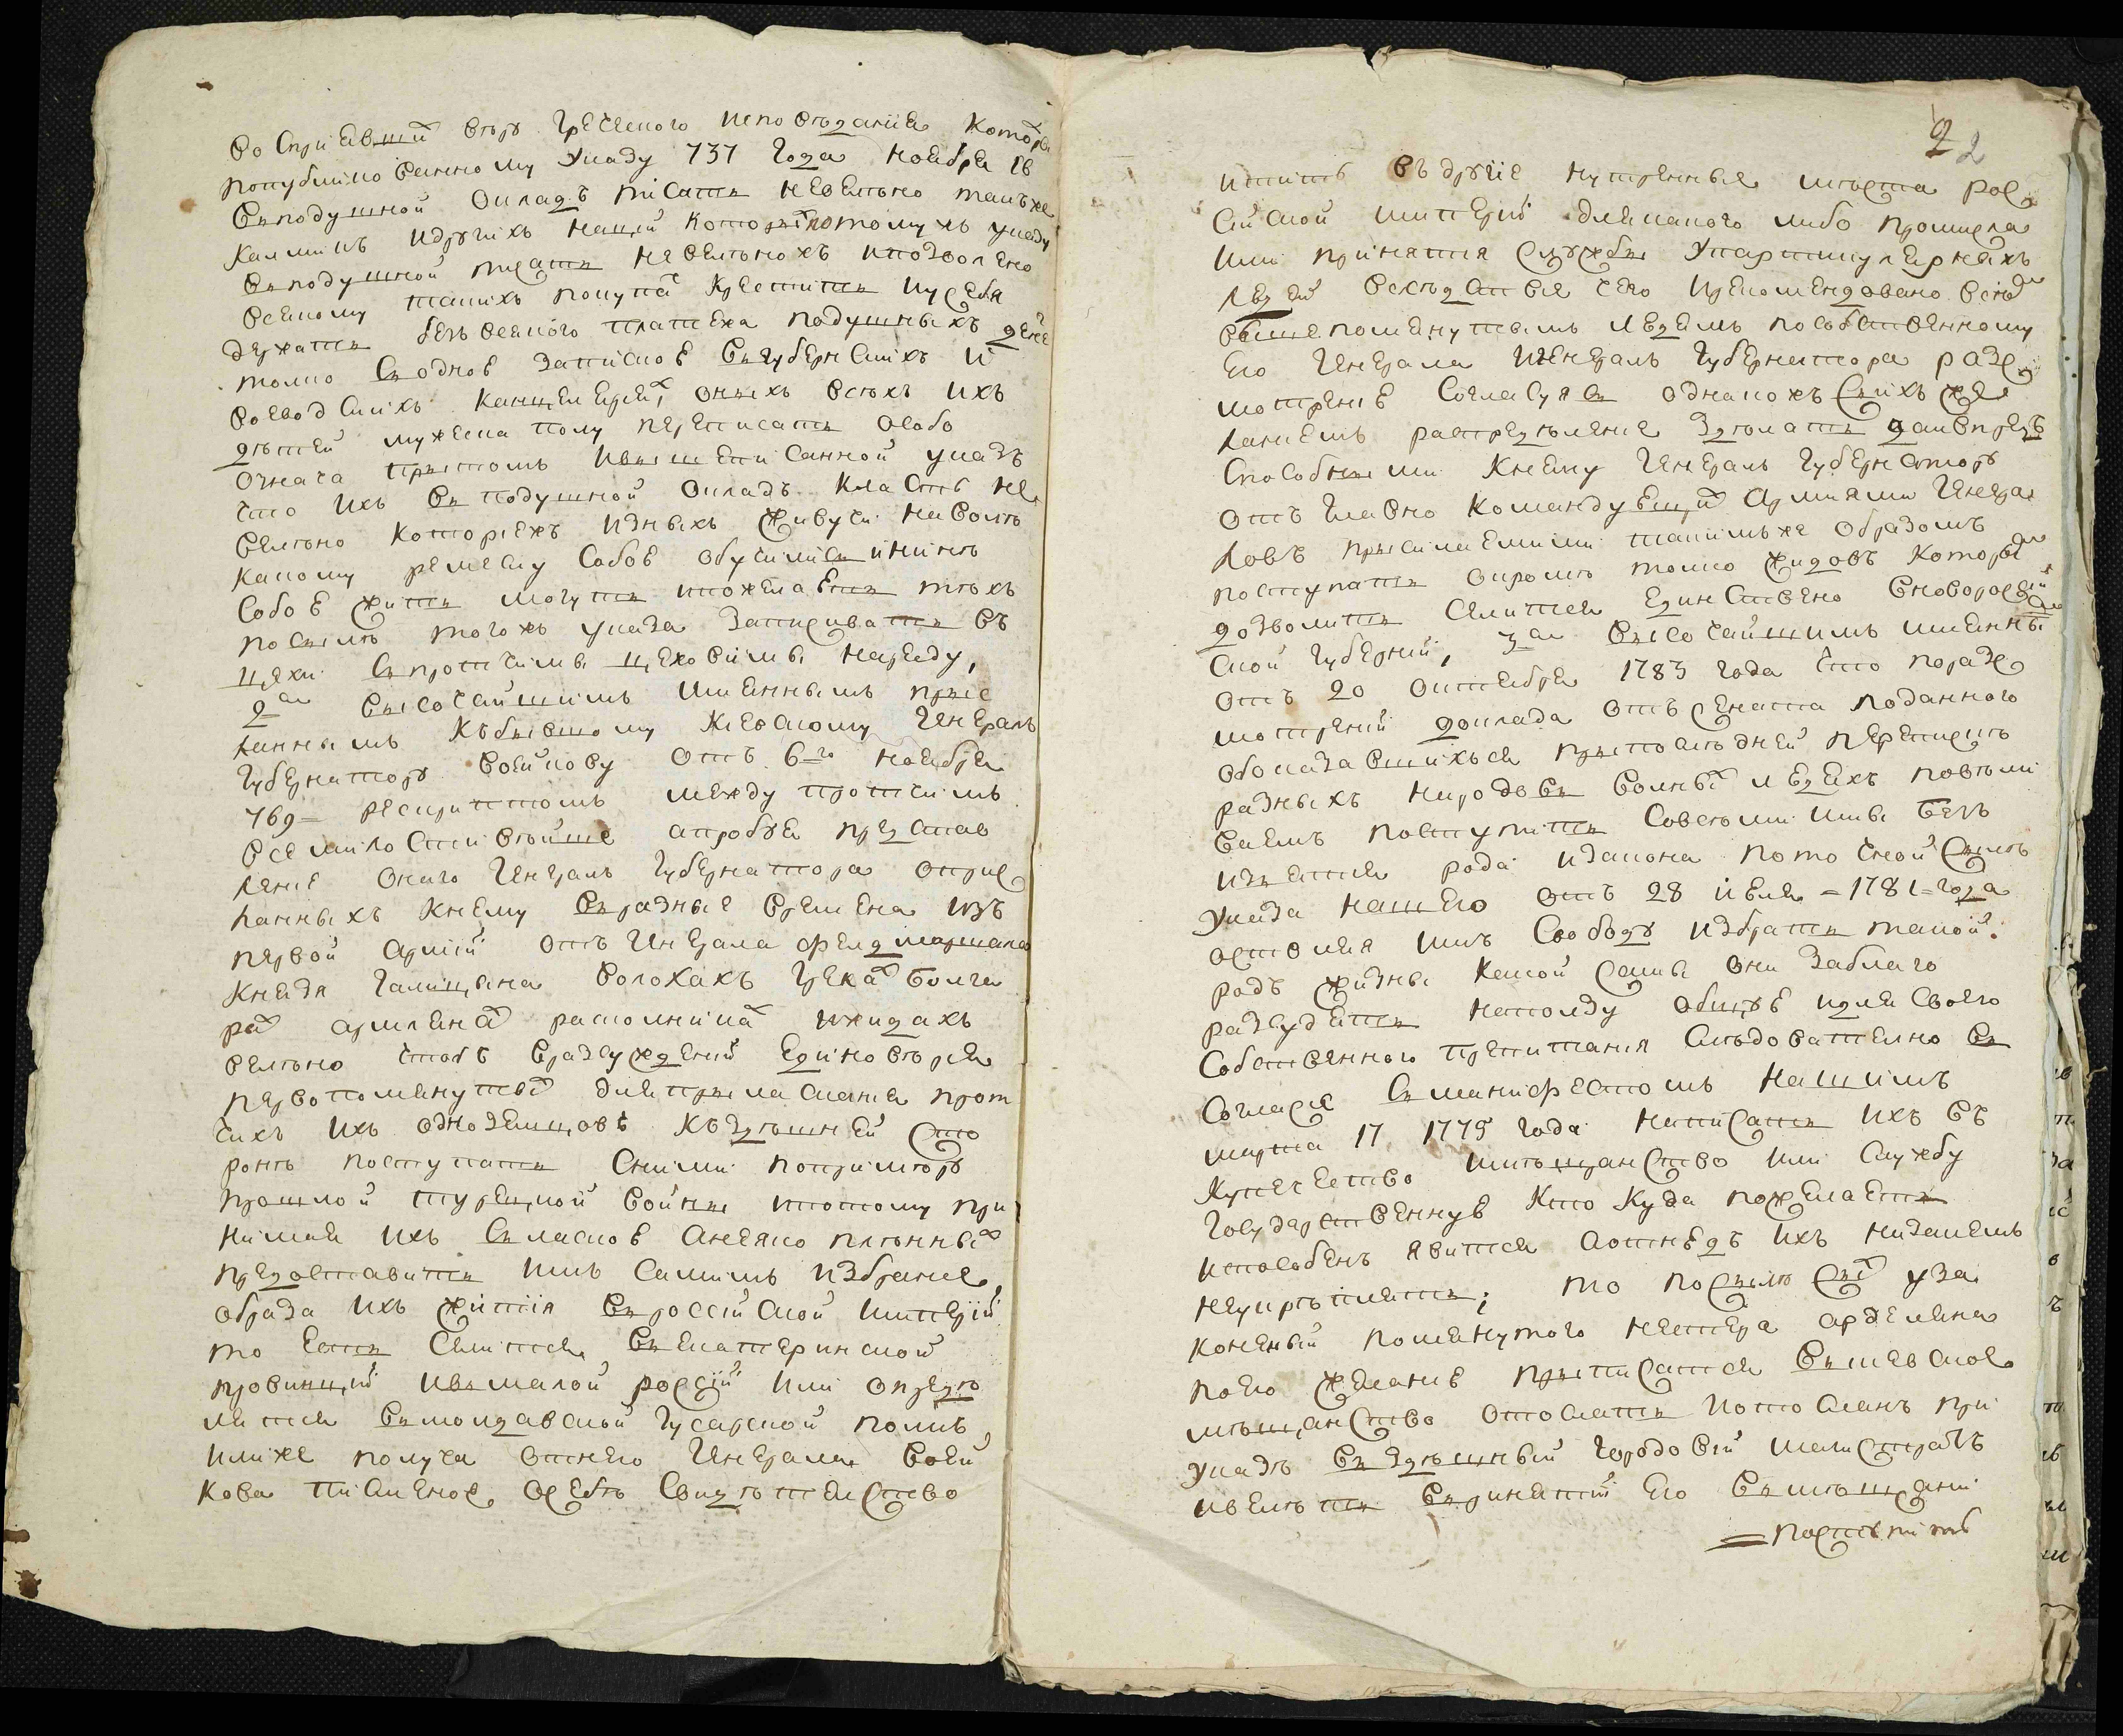 воспрiявшй вѣру греческого исповѣданiя которы
попубликованному указу 737 года ноября 16
вподушной окладъ писать невелѣно такъже
калмыкъ идругихъ нацiй которы потомужъ указу
вподушной писать невелѣножъ ипозволено
всякому такихъ покупа креститъ иусебя
держать безъ всякого платежа подушныхъ дене
толко содною запискою вгубернскихъ и
воеводскихъ канцелярия, оныхъ всѣхъ ихъ
дѣтей мужеска полу переписать особо
означа притомъ ивышеписанной указъ
что ихъ вподушной окладъ класть не
велѣно которiежъ изныхъ живучи наволѣ
какому ремеслу собою обучились инынѣ
собою жить могутъ ипожелаютъ тѣхъ
посилѣ тогожъ указа записивать въ
цехи спротчими цеховими наряду,
2е высочайшимъ имяннымъ приɕ
ланнымъ къбывшому кiевскому генералъ
губернатору воейкову отъ 6го ноября
769 рескриптомъ между протчимъ
всемилостивѣйше апробуя представ
ленiе онаго генералъ губернатора оприс
ланныхъ кнему вразные времена изъ
первой армiй отъ генерала фелдмаршала
князя галицына волохахъ грека болга
ра армяна расколника ижидахъ
велѣно чтобъ вразсужденiй единовѣрия
первопомянуты дляприласканiя прот
чихъ ихъ одноземцовъ къздѣшней сто
ронѣ поступать сними попримѣру
прошлой турецкой войны ипотому при
нимая ихъ сласкою анеяко плѣнны
предоставить имъ самимъ избранiе
образа ихъ житiя вроссiйской имперiй
то есть селится векатеринской
провинцiй ивмалой россiй или опредѣ
лится вмолдавской гусарской полкъ,
илиже получа отнего генерала воей
кова писменое осебѣ свидѣтелство
2 2
иттить въ другiе нутренныя мѣста рос
сiйской имперiй длякакого либо промисла
или принятия службы упартикулярныхъ
людей вслѣдствiе чего ирекомендовано всѣ
вышепомянутымъ людямъ пособственному
его генерала игенералъ губернатора разс
мотренiю согласуяся однакожъ сихъ же
ланиемъ распредѣленiе здѣлать даивпредъ
способными кнему генералъ губернаторъ
отъ главно командующи армиями генера
ловъ присилаемими такимъже образомъ
поступать окромѣ толко жидовъ которы
дозволить селится единствено вновороссiй
ской губернiй, 3е высочайшимъ имянны
отъ 20 октября 1783 года что поразс
мотренiй доклада отъ сената поданного
обоказавшихься припослѣдней переписѣ
разныхъ народовъ волны людехъ повѣли
ваемъ поступить совсѣми ими безъ
изъятия рода изакона поточной силѣ
указа нашего отъ 28 июля 1781 года
оставляя имъ свободу избрать такой
родъ жизны какой сами они заблаго
разсудятъ наползу общую идля своего
собственного препитания слѣдователно въ
согласiе сманифестомъ нашимъ
марта 17 1775 года написать ихъ въ
купечество имѣщанство или службу
государственную кто куда пожелаетъ
испособенъ явится аотнюдъ ихъ низакемъ
неукрѣплять; то посилѣ сы узако
коненый помянутого нестера арделяна
поего желанiю приписатся вкiевскоѣ
мѣщанство отослать ипотосланъ при
указѣ вздѣшный городовiй магистратъ
ивелѣть впринятiй его вмѣщани
поступить